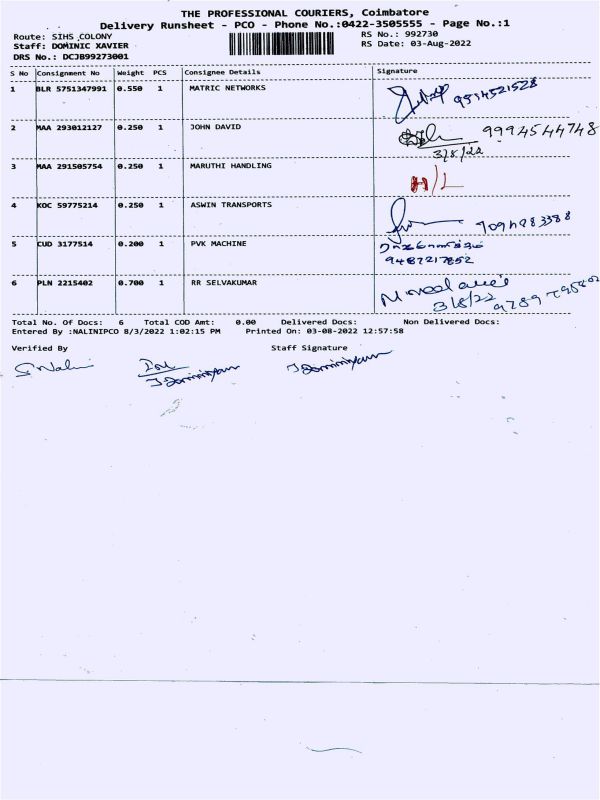 THE PROFESSIONAL COURIERS, Coimbatore
Delivery Runsheet - PCO - Phone No.:0422-3505555 - Page No.:1
Route: SIHS COLONY
RS No.: 992730
Staff: DOMINIC XAVIER
RS Date: 03-Aug-2022
DRS No.: DCJB99273001
S No Consignment No Weight PCS Consignee Details Signature
1 BLR 5751347991 0.550 1 MATRIC NETWORKS
2 MAA 293012127 0.250 1 JOHN DAVID 9994544748
3/8/22
3 MAA 291505754 0.250 1 MARUTHI HANDLING H/L
4 KOC 59775214 0.250 1 ASWIN TRANSPORTS
5 CUD 3177514 0.200 1 PVK MACHINE
9487217852
6 PLN 2215402 0.700 1 RR SELVAKUMAR
3/8/22
Total No. Of Docs: 6 Total COD Amt: 0.00 Delivered Docs: Non Delivered Docs:
Entered By :NALINIPCO 8/3/2022 1:02:15 PM Printed On: 03-08-2022 12:57:58
Verified By Staff Signature
S Nalini